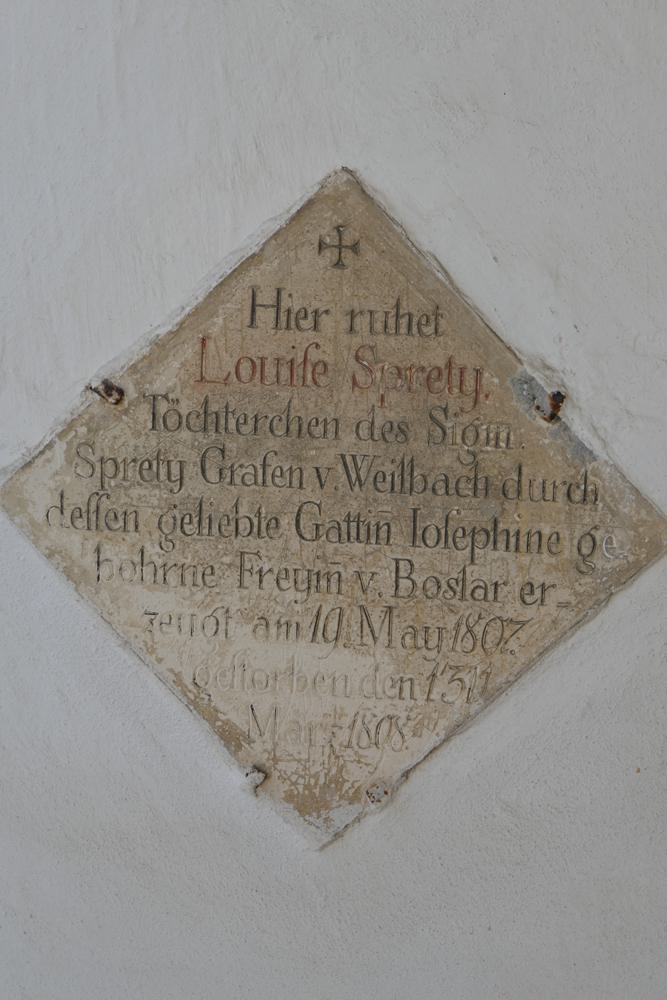 Hier ruhet
Louiſe Sprety.
Töchterchen des Sigm.
Sprety Grafen v. Weilbach durch
deſſen geliebte Gattin̄ Ioſephine ge
bohrne Freyin̄ v. Boslar er-
zeugt am 19. May 1807.
geſtorben den
März 1808.